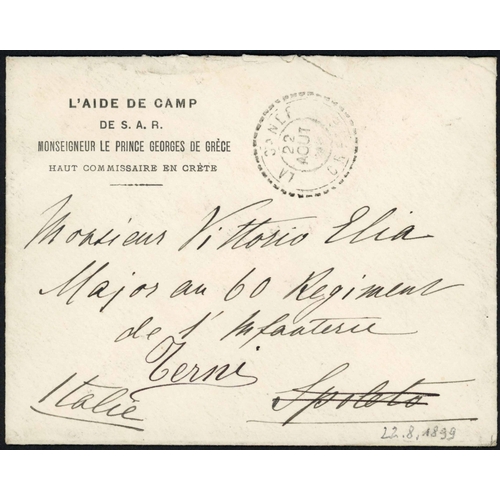 L'AIDE DE CAMP
DE S. A. R.
MONSEIGNEUR LE PRINCE GEORGES DE GRÈCE
HAUT COMMISSAIRE EN CRÈTE
LA CANÉE
22
AOUT
CRÈTE
Monsieur Vittorio Elia
Major au 60 Regiment
de l'Infanterie
Terni
Italie Spoleto
22.8.1899